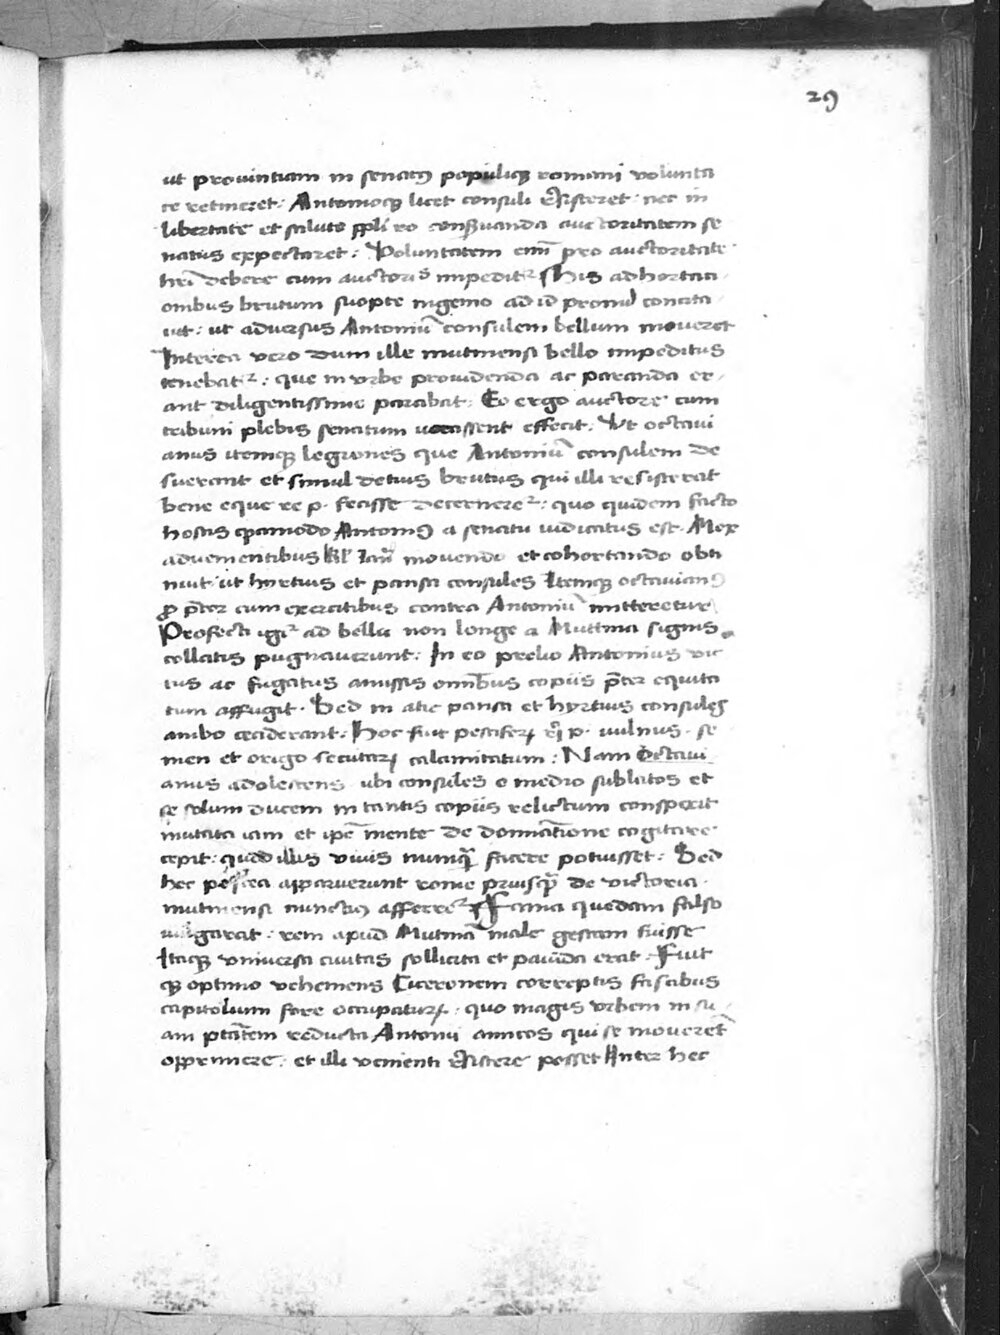 29
ut prouintiam in senatus populiq romani volunta
te retineret. Antonioq licet consuli resisteret. nec in
libertate et salute ppli ro conseruanda auctoritatem se
natus expectaret. Voluntatem eni pro auctoritate
heri debere cum auctoris impeditr. His adhortati
onibus brutum suopte ingenio ad id pronu concita
uit: ut aduersus Antoniu consulem bellum moueret
Interea vero dum ille mutinensi bello impeditus
tenebatr: que in vrbe prouidenda ac paranda er
ant diligentissime parabat. Eo ergo auctore cum
tribuni plebis senatum vocassent effecit. Vt octaui
anus itemq legiones que Antoniu consulem de
suerant et simul detius brutus qui illi resisterat
bene eque re p. fecisse decernerer: quo quidem facto
hostis qamodo Antonius a senatu iudicatus est. Mox
aduenientibus kl Ian mouendo et cohortando obti
nuit ut hyrtius et pansa consules Itemq octauianus
p pter cum exercitibus contra Antoniu mitteretur
Profecti igir ad bellu non longe a Muttina signis
collatis pugnauerunt: In eo prelio Antonius vic
tus ac fugatus amissis omnibus copiis pter equita
tum affugit. Sed in atie pansa et hyrtius consules
ambo ceciderant: Hoc fuit pestifer rei p. vulnus. se
men et origo secutar calamitatum: Nam Octaui
anus adolescens ubi consules e medio sublatos et
se solum ducem in tantis copiis relictum conspexit
mutata iam et ipse mente de dominatione cogitare
cepit: quod illis viuis nunq facere potuisset: Sed
hec postea apparuerunt rome priusq de victoria
mutinensi nunctius afferrer Fama quedam falso
vulgarat: rem apud Mutina male gestam fuisse
Itaq vniuersa ciuitas sollicita et pauida erat. Fuit
q optimo vehemens Ciceronem correptis fascibus
capitolium fore occupatur: quo magis vrbem in su
am ptatem reducta Antonii amicos qui se mouerent
opprimere: et illi venienti resistere posset Inter hec